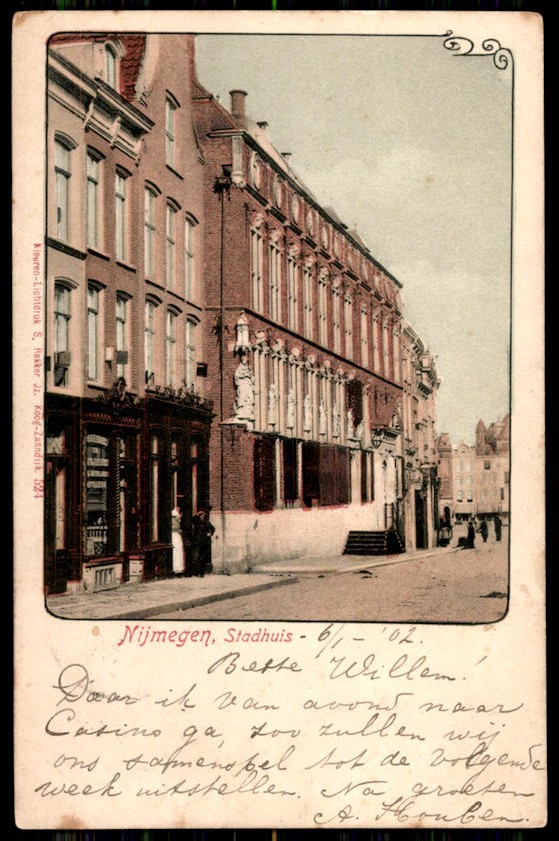 Kleuren-Lichtdruk S. Bakker Jz. Koog-Zaandijk. 524
Nijmegen, Stadhuis - 6/1 - '02.
Beste Willem!
Daar ik van avond naar
Casino ga, zoo zullen wij
ons samenspel tot de volgende
week uitstellen. Na groeten
A. Houben.